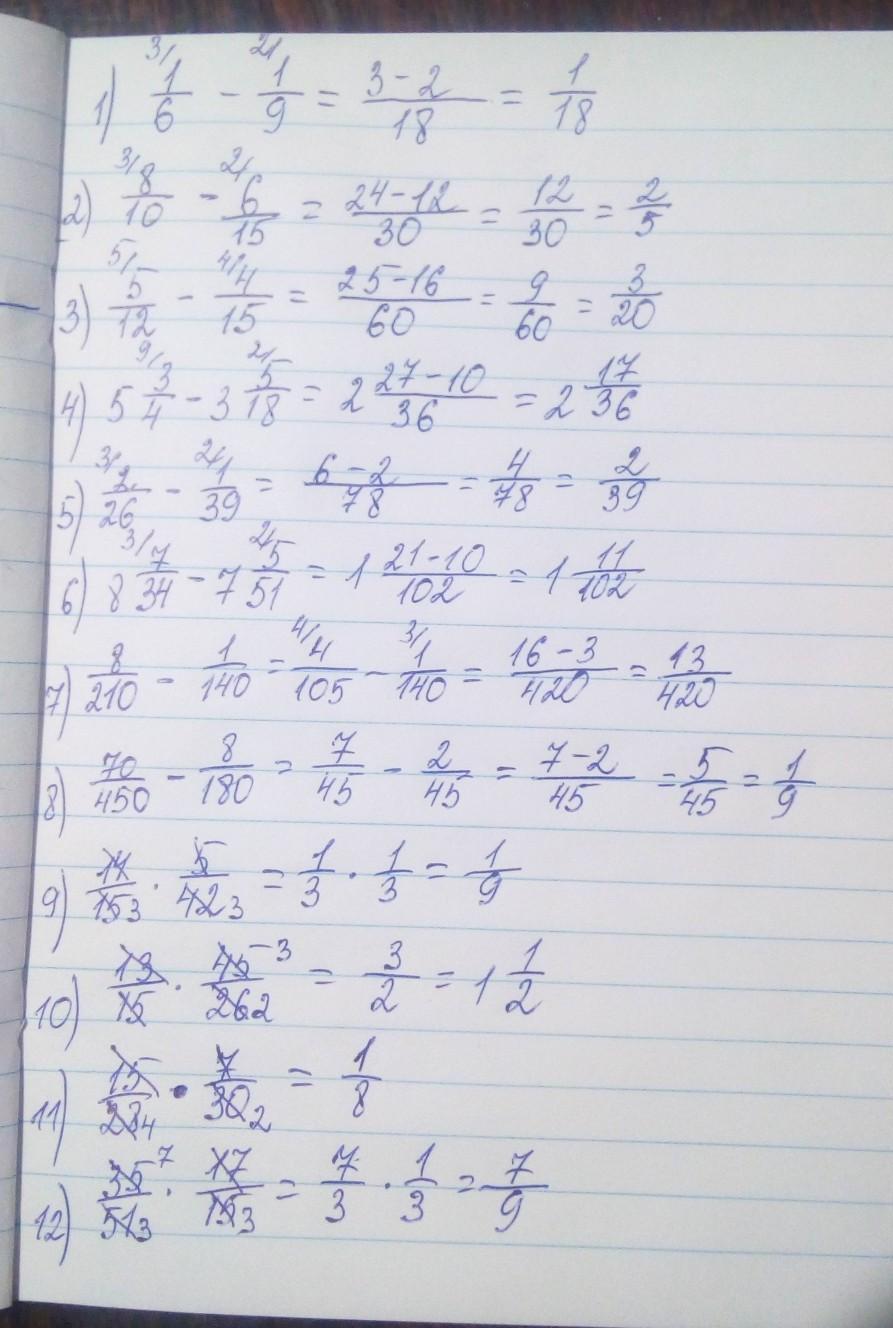 1) ³/1/6 - ²/1/9 = (3-2)/18 = 1/18
2) ³/8/10 - ²/6/15 = (24-12)/30 = 12/30 = 2/5
3) ⁵/5/12 - ⁴/4/15 = (25-16)/60 = 9/60 = 3/20
4) 5 ⁹/3/4 - 3 ²/5/18 = 2 (27-10)/36 = 2 17/36
5) ³/2/26 - ²/1/39 = (6-2)/78 = 4/78 = 2/39
6) 8 ³/7/34 - 7 ²/5/51 = 1 (21-10)/102 = 1 11/102
7) 8/210 - 1/140 = ⁴/4/105 - ³/1/140 = (16-3)/420 = 13/420
8) 70/450 - 8/180 = 7/45 - 2/45 = (7-2)/45 = 5/45 = 1/9
9) 14/15 3 · 5/42 3 = 1/3 · 1/3 = 1/9
10) 13/15 · 45 3/26 2 = 3/2 = 1 1/2
11) 15/28 4 · 7/30 2 = 1/8
12) 35 7/51 3 · 17/15 3 = 7/3 · 1/3 = 7/9